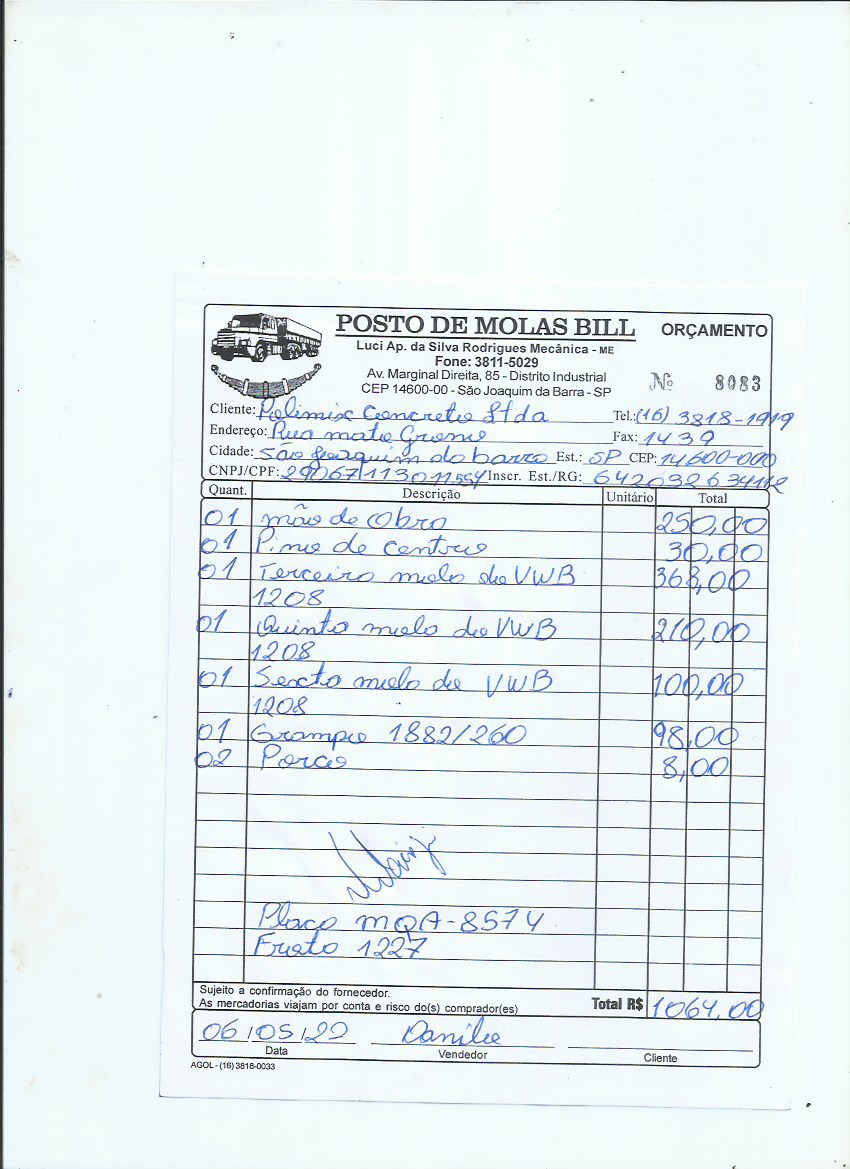 POSTO DE MOLAS BILL ORÇAMENTO
Luci Ap. da Silva Rodrigues Mecânica - ME
Fone: 3811-5029
Av. Marginal Direita, 85 - Distrito Industrial
CEP 14600-00 - São Joaquim da Barra - SP
Nº 8083
Cliente: Polimix Concreto Ltda Tel.: (16) 3818-1919
Endereço: Rua mato Grosso Fax: 1439
Cidade: São Joaquim da barra Est.: SP CEP: 14600-000
CNPJ/CPF: Inscr. Est./RG:
Quant. Descrição Unitário Total
01 mão de Obra 250,00
01 Pino de centro 30,00
01 Terceiro mola do VWB 368,00
1208
01 Quinto mola do VWB 210,00
1208
01 Sexto mola do VWB 100,00
1208
01 Grampo 1882/260 98,00
02 Porca 8,00
Placa MQA-8574
Frota 1227
Sujeito a confirmação do fornecedor.
As mercadorias viajam por conta e risco do(s) comprador(es) Total R$ 1064,00
06/05/20 Danilo
Data Vendedor Cliente
AGOL - (16) 3818-0033